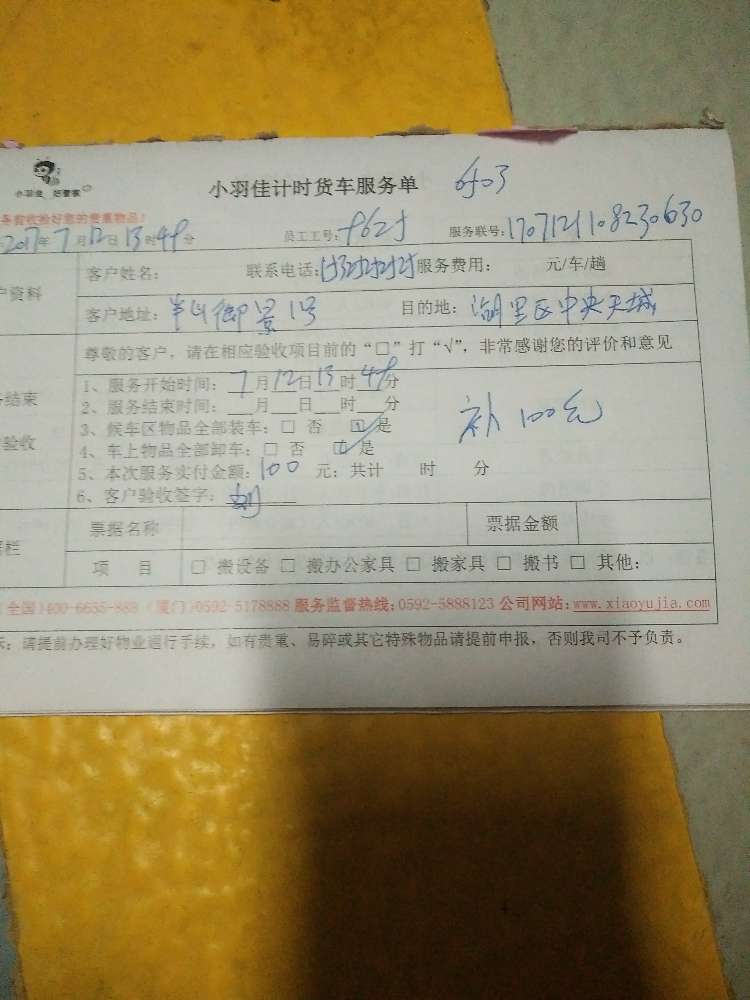 小羽佳 好管家
小羽佳计时货车服务单 6503
务前收检好您的贵重物品!
2017年7月12日13时49分 员工工号: 服务联号:1707121108230630
户资料 客户姓名: 联系电话: 服务费用: 元/车/趟
客户地址:半山御景1号 目的地:湖里区中央天城
尊敬的客户,请在相应验收项目前的“□”打“√”,非常感谢您的评价和意见
务结束
验收
1、服务开始时间:7月12日13时49分
2、服务结束时间:___月___日___时___分
3、候车区物品全部装车:□ 否 ☑ 是
补100元
4、车上物品全部卸车:□ 否 ☑ 是
5、本次服务实付金额:100 元;共计 时 分
6、客户验收签字:
票据名称 票据金额
项 目 □ 搬设备 □ 搬办公家具 □ 搬家具 □ 搬书 □ 其他:
(全国)400-6655-888 (厦门)0592-5178888 服务监督热线:0592-5888123 公司网站:www.xiaoyujia.com
示:请提前办理好物业通行手续,如有贵重、易碎或其它特殊物品请提前申报,否则我司不予负责。